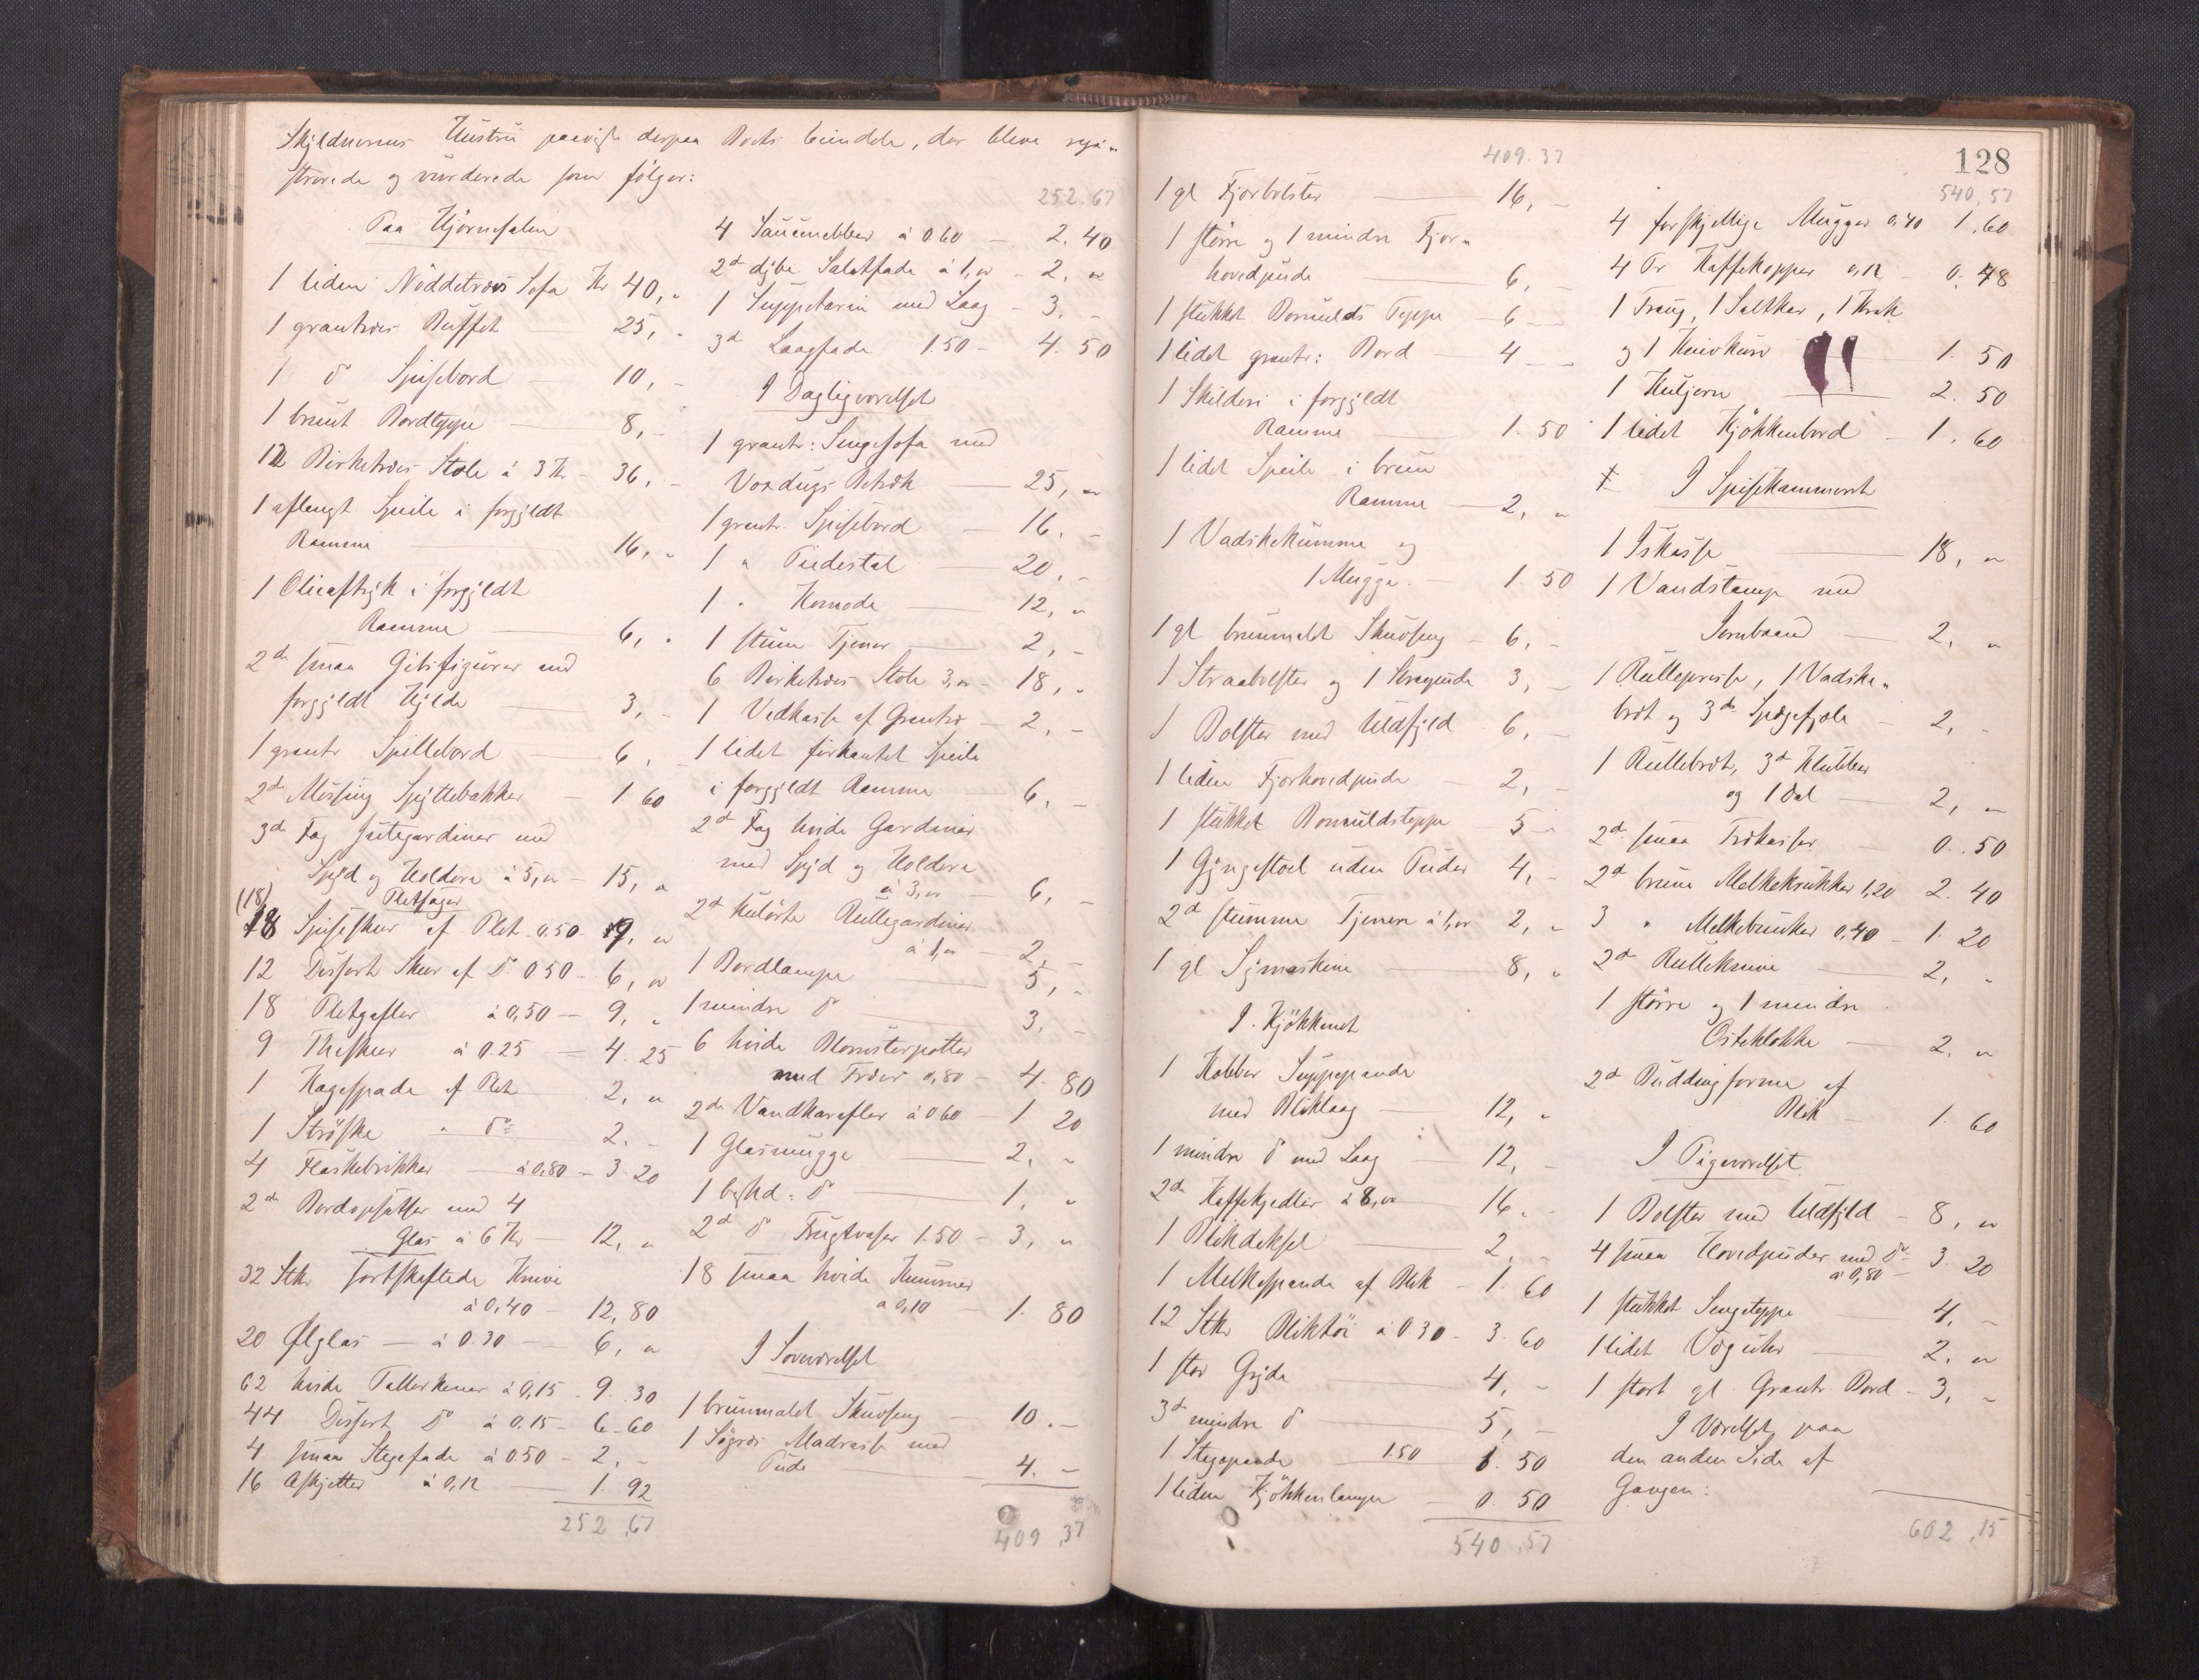 Skyldnerens Hustru paaviste derpaa Boets Eiendele, der bleve regi„
strerede og vurderede som følger:
Paa Hjørnesalen
1 liden Nøddetræes Sofa Kr 40, „
1 grantræes Buffet — 25, „
1 do Spisebord — 10, -
1 brunt Bordteppe — 8, -
12 Birketræes Stole à 3 Kr - 36, -
1 aflangt Speile i forgyldt
Ramme — 16, „
1 Olieaftryk i forgyldt
Ramme — 6, „
2de smaa Gibsfigurer med
forgyldt Hylde — 3, -
1 grantr Spillebord — 6, -
2de Messing Spyttebakker — 1 60
3de Fag Jutegardiner med
Spyd og Holdere à 5, „ - 15, „
Pletsager
(18)
18 Spiseskeer af Plet 0.50 - 9, „
12 Dessert Skeer af Do 0 50 - 6, „
18 Pletgafler à 0,50 — 9, „
9 Theskeer à 0.25 — 4. 25
1 Kagespade af Plet — 2, „
1 Strøske „ Do — 2. -
4 Flaskebrikker — à 0,80 - 3. 20
2de Bordopsatser med 4
Glas à 6 Kr — 12, „
32 Stkr sortskaftede Knive
à 0,40 — 12,80
20 Ølglas — à 0.30 — 6, „
62 hvide Tallerkener à 0,15 - 9. 30
44 Dessert Do à 0,15 - 6-60
4 smaa Stegefade à 0.50 - 2, -
16 Asjetter à 0,12 — 1. 92
252,67
252.67
4 Sauceneb̶ber à 0.60 — 2. 40
2de dybe Salatfade à 1, „ - 2, „
1 Suppeterrin med Laag - 3, -
3de Laagfade 1.50 - 4. 50
I Dagligværelset
1 grantr: Sengesofa med
Voxdugs Betræk — 25, „
1 grantr. Spisebord — 16, -
1 „ Piedestal — 20, -
1 „ Komode — 12, „
1 stum Tjener — 2, -
6 Birketræes Stole 3, „ - 18, „
1 Vedkasse af Grantræ - 2, -
1 lidet firkantet Speile
i forgyldt Ramme — 6, -
2de Fag hvide Gardiner
med Spyd og Holdere
à 3, „ — 6, -
2de kulørte Rullegardiner
à 1, „ — 2, -
1 Bordlampe — 5, „
1 mindre do — 3, -
6 hvide Blomsterpotter
med Træer 0,80 - 4. 80
2de Vandkarafler à 0 60 - 1 20
1 Glasmugge — 2, „
1 do — 1, „
2de do Frugtvaser 1.50 - 3, „
18 smaa hvide Kummer
à 0,10 — 1. 80
I Soveværelset
1 brunmalet Skuvseng — 10. -
1 Søgræs Madrasse med
Pude — 4. -
409,37
409.37
128
1 gl Fjærbolster — 16, -
1 større og 1 mindre Fjær„
hovedpude — 6, -
1 stukket Bomulds Teppe - 6 —
1 lidet grantr: Bord — 4 —
1 Skilderi i forgyldt
Ramme — 1. 50
1 lidet Speile i brun
Ramme — 2, „
1 Vadskekumme og
1 Mugge. — 1. 50
1 gl brunmalet Skuvseng - 6, -
1 Straabolster og 1 Straapude 3, -
1 Bolster med Uldfyld - 6, -
1 liden Fjærhovedpude — 2, -
1 stukket Bomuldsteppe — 5 -
1 Gyngestoel uden Puder 4, -
2de stumme Tjenere à 1, „ 2, „
1 gl Symaskine — 8, „
I Kjøkkenet
1 Kobber Suppepande
med Bliklaag — 12, „
1 mindre do med Laag — 12, -
2de Kaffekjedler à 8, „ — 16. -
1 Blikdeksel — 2, -
1 Melkespande af Blik - 1. 60
12 Stkr Bliktøi à 0 30 - 3. 60
1 stor Gryde — 4, -
3de mindre do — 5, -
1 Stegepande — 1.50 1. 50
1 liden Kjøkkenlampe — 0. 50
540,57
540,57
4 forskjellige Mugger 0,40 1.60
4 Pr Kaffekopper 0,12 - 0. 48
1 Traug, 1 Saltkar,
og 1 Knivkurv — 1. 50
1 — 2. 50
1 lidet Kjøkkenbord - 1. 60
I Spisekammeret
1 Iskasse — 18, „
1 Vandstamp med
Jernbaand — 2, „
1 Rullepresse, 1 Vadske„
bræt og 3de Spegefjæle — 2, -
1 Rullebræt, 3de Klubber
og — 2, „
2de smaa Trækasser — 0. 50
2de brune Melkekrukker 1,20 2. 40
3 „ Melkebunker 0,40 - 1. 20
2de Rulleknive — 2, „
1 større og 1 mindre
Osteklokke — 2, „
2de Puddingforme af
Blik — 1. 60
I Pigeværelset
1 Bolster med Uldfyld - 8, „
4 smaa Hovedpuder med Do 3 20
à 0,80
1 stukket Sengeteppe — 4, -
1 lidet Væguhr — 2, „
1 stort gl Grantr Bord - 3, -
I Værelset paa
den anden Side af
Gangen:
602,15